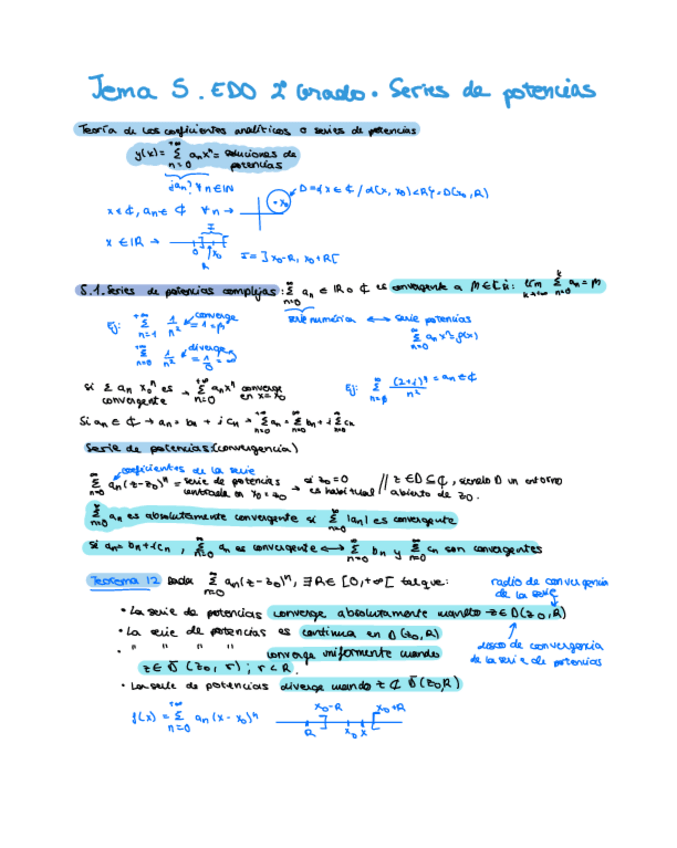 Tema 5. EDO 2º Grado. Series de potencias
Teoría de los coeficientes analíticos o series de potencias
y(x) = ∑_{n=0}^{+∞} a_n x^n = soluciones de potencias
¿a_n? ∀ n ∈ ℕ
x ∈ ₵, a_n ∈ ₵ ∀n → D = {x ∈ ₵ / d(x, x_0) < R} = D(x_0, R)
x ∈ ℝ → I
0 x_0
R
I = ]x_0-R, x_0+R[
5.1. Series de potencias complejas: ∑_{n=0}^{∞} a_n ∈ ℝ o ₵ es convergente a M ∈ ₵ si: lim_{k→+∞} ∑_{n=0}^{k} a_n = M
Ej: ∑_{n=1}^{+∞} 1/n² converge = 1 = M
serie numérica ↔ serie potencias
∑_{n=0}^{+∞} 1/n² diverge = 1/0 = ∞
∑_{n=0}^{∞} a_n x^n = f(x)
si ∑ a_n x_0^n es convergente → ∑_{n=0}^{+∞} a_n x^n converge en x = x_0
Ej: ∑_{n=0}^{∞} (2+i)^n / n² = a_n ∈ ₵
Si a_n ∈ ₵ → a_n = b_n + i c_n → ∑_{n=0}^{+∞} a_n = ∑_{n=0}^{∞} b_n + i ∑_{n=0}^{∞} c_n
Serie de potencias: (convergencia)
coeficientes de la serie
∑_{n=0}^{∞} a_n (z-z_0)^n = serie de potencias centrada en x_0 = z_0 → si z_0 = 0 es habitual // z ∈ D ⊆ ₵, siendo D un entorno abierto de z_0.
∑_{n=0}^{∞} a_n es absolutamente convergente si ∑_{n=0}^{∞} |a_n| es convergente
Si a_n = b_n + i c_n, ∑_{n=0}^{∞} a_n es convergente ↔ ∑_{n=0}^{∞} b_n y ∑_{n=0}^{∞} c_n son convergentes
Teorema 12 Dada ∑_{n=0}^{∞} a_n (z-z_0)^n, ∃ R ∈ [0, +∞[ tal que:
radio de convergencia de la serie
• La serie de potencias converge absolutamente cuando z ∈ D(z_0, R)
• La serie de potencias es continua en D(z_0, R)
• " " " " converge uniformemente cuando
z ∈ D̄(z_0, r); r < R.
disco de convergencia de la serie de potencias
• La serie de potencias diverge cuando z ∉ D̄(z_0, R)
f(x) = ∑_{n=0}^{+∞} a_n (x - x_0)^n
x_0-R x_0+R
R x_0 x